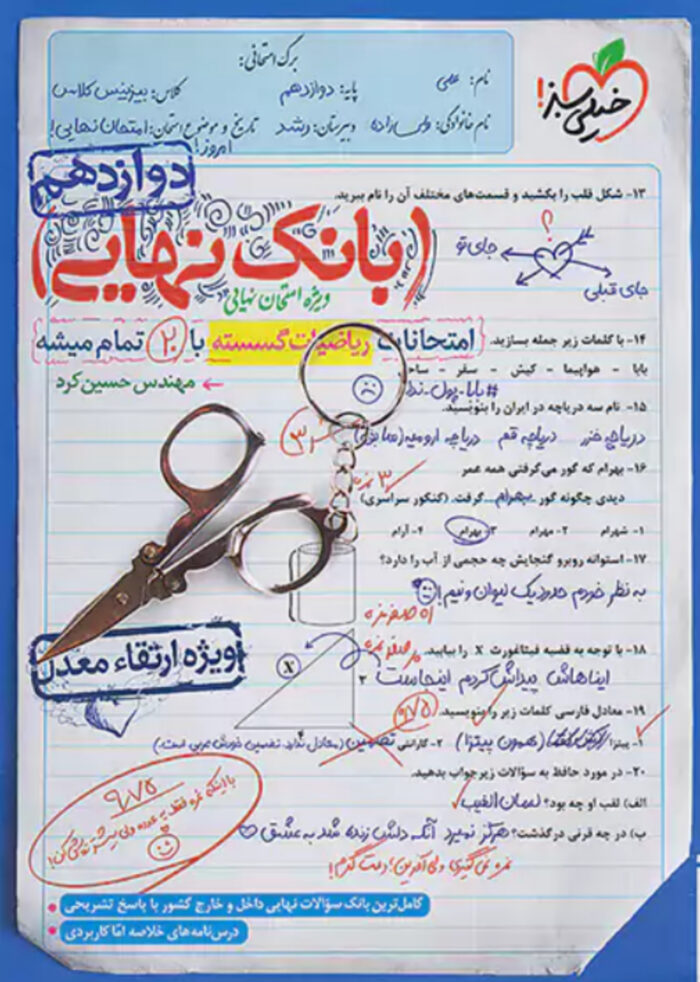 برگ امتحانی:
نام: علی
پایه: دوازدهم
کلاس: بیزینس کلاس
نام خانوادگی: ولی زاده
دبیرستان: رشد
تاریخ و موضوع امتحان: امتحان نهایی!
امروز!
خیلی سبز!
دوازدهم
(بانک نهایی)
ویژه امتحان نهایی
امتحانات ریاضیات گسسته با ۲۰ تمام میشه
مهندس حسین کرد
۱۳- شکل قلب را بکشید و قسمت‌های مختلف آن را نام ببرید.
؟
جای تو
جای قبلی
۱۴- با کلمات زیر جمله بسازید.
بابا - هواپیما - کیش - سفر - ساح
#بابا-پول-ندا
۱۵- نام سه دریاچه در ایران را بنویسید.
دریاچه خزر دریاچه قم دریاچه ارومیه
۱۶- بهرام که گور می‌گرفتی همه عمر
دیدی چگونه گور بهرام گرفت. (کنکور سراسری)
۱- شهرام ۲- مهرام ۳- بهرام ۴- آرام
۱۷- استوانه روبرو گنجایش چه حجمی از آب را دارد؟
به نظر خودم حدود یک لیوان و نیم!
ویژه ارتقاء معدل
۱۸- با توجه به قضیه فیثاغورث X را بیابید.
ایناهاش پیداش کردم اینجاست
X
۲
۴
۱۹- معادل فارسی کلمات زیر را بنویسید.
۹/۷۵
۱- پیتزا (همون پیتزا) ۲- گارانتی تضمین (معادل ندارد تضمین خودش عربی است.)
۲۰- در مورد حافظ به سؤالات زیر جواب بدهید.
الف) لقب او چه بود؟ لسان الغیب
ب) در چه قرنی درگذشت؟ هرگز نمیرد آنکه دلش زنده شد به عشق
۹/۷۵
کامل‌ترین بانک سؤالات نهایی داخل و خارج کشور با پاسخ تشریحی
درس‌نامه‌های خلاصه امّا کاربردی